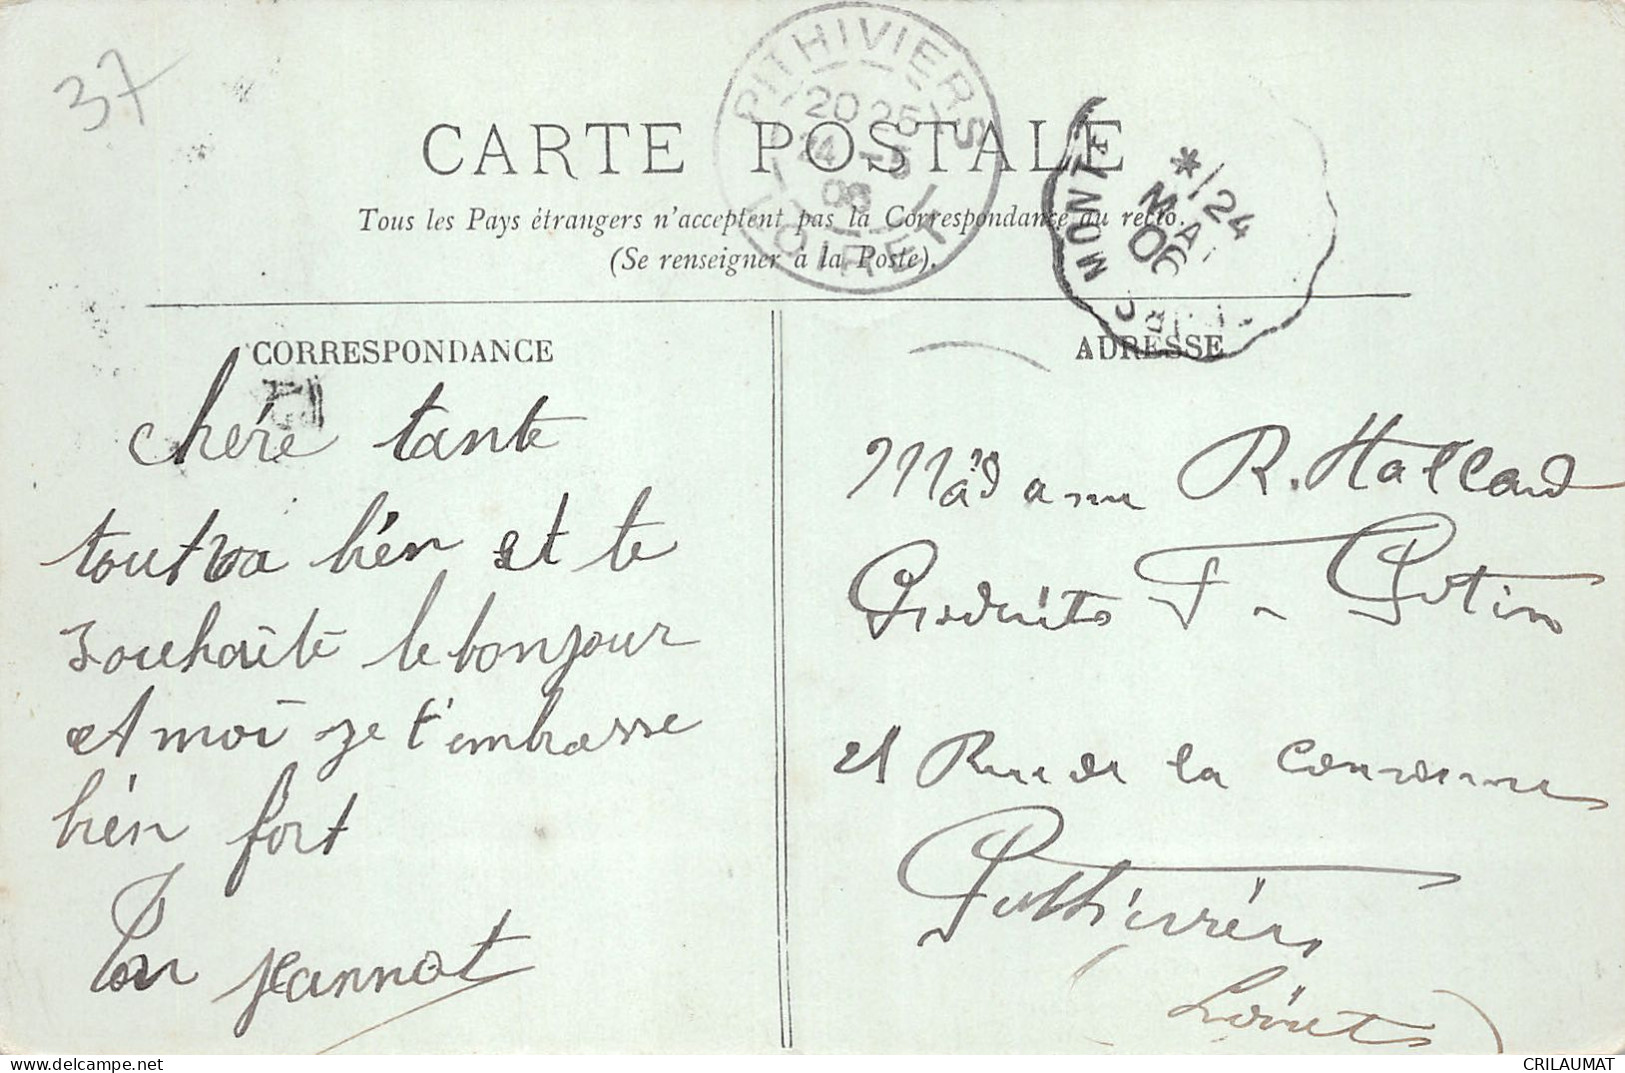 37
CARTE POSTALE
Tous les Pays étrangers n'acceptent pas la Correspondance au recto.
(Se renseigner à la Poste).
PITHIVIERS
20 25
24 -5
06
LOIRET
MONT
*/24
MA
06
CORRESPONDANCE
chère tante
tout va bien et te
souhaite le bonjour
et moi je t'embrasse
bien fort
Ton jeannot
ADRESSE
Madame R. Halland
Produits F- Potin
21 Rue de la Couronne
Pithiviers
Loiret
CRILAUMAT